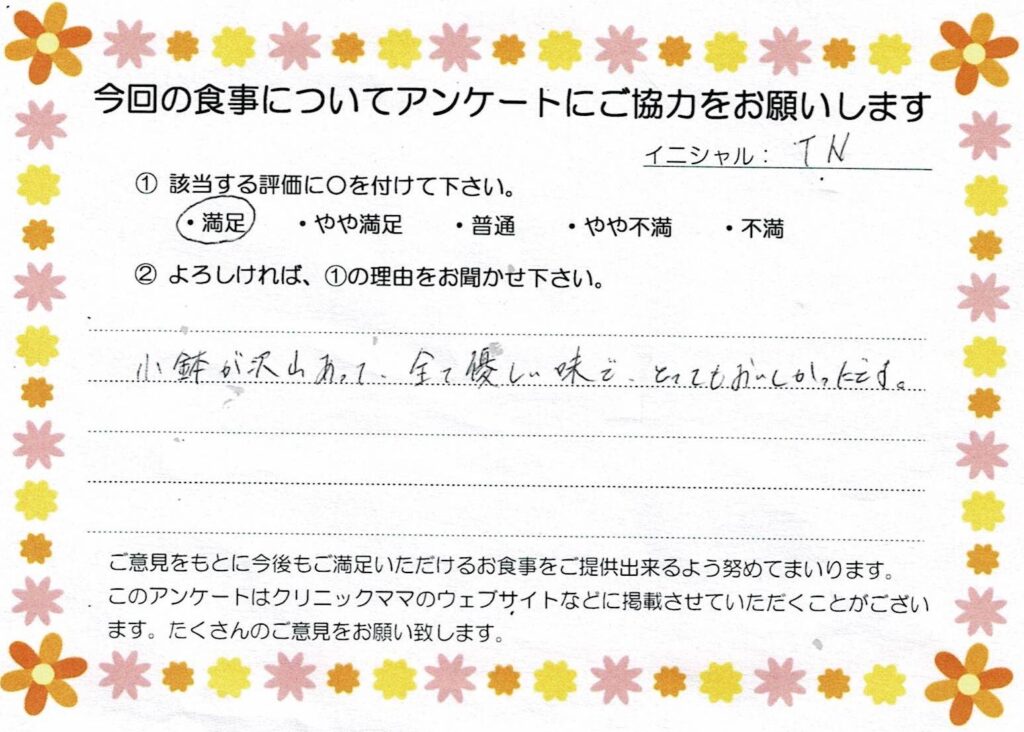 今回の食事についてアンケートにご協力をお願いします
イニシャル： TN
① 該当する評価に〇を付けて下さい。
・満足 ・やや満足 ・普通 ・やや不満 ・不満
② よろしければ、①の理由をお聞かせ下さい。
小鉢が沢山あって、全て優しい味で、とってもおいしかったです。
ご意見をもとに今後もご満足いただけるお食事をご提供出来るよう努めてまいります。
このアンケートはクリニックママのウェブサイトなどに掲載させていただくことがござい
ます。たくさんのご意見をお願い致します。